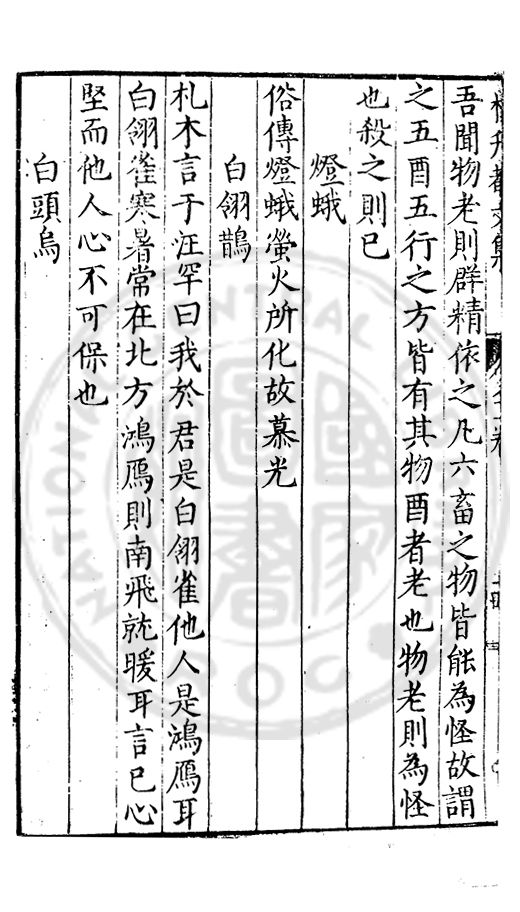 吾聞物老則群精依之凡六畜之物皆能為怪故謂
之五酉五行之方皆有其物酉者老也物老則為怪
也殺之則已
燈蛾
俗傳燈蛾螢火所化故慕光
白翎鵲
札木言于汪罕曰我於君是白翎雀他人是鴻鴈耳
白翎雀寒暑常在北方鴻鴈則南飛就暖耳言已心
堅而他人心不可保也
白頭烏